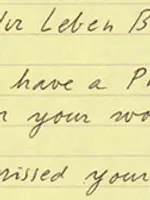 ur Leben B
have a P
r your wo
missed your